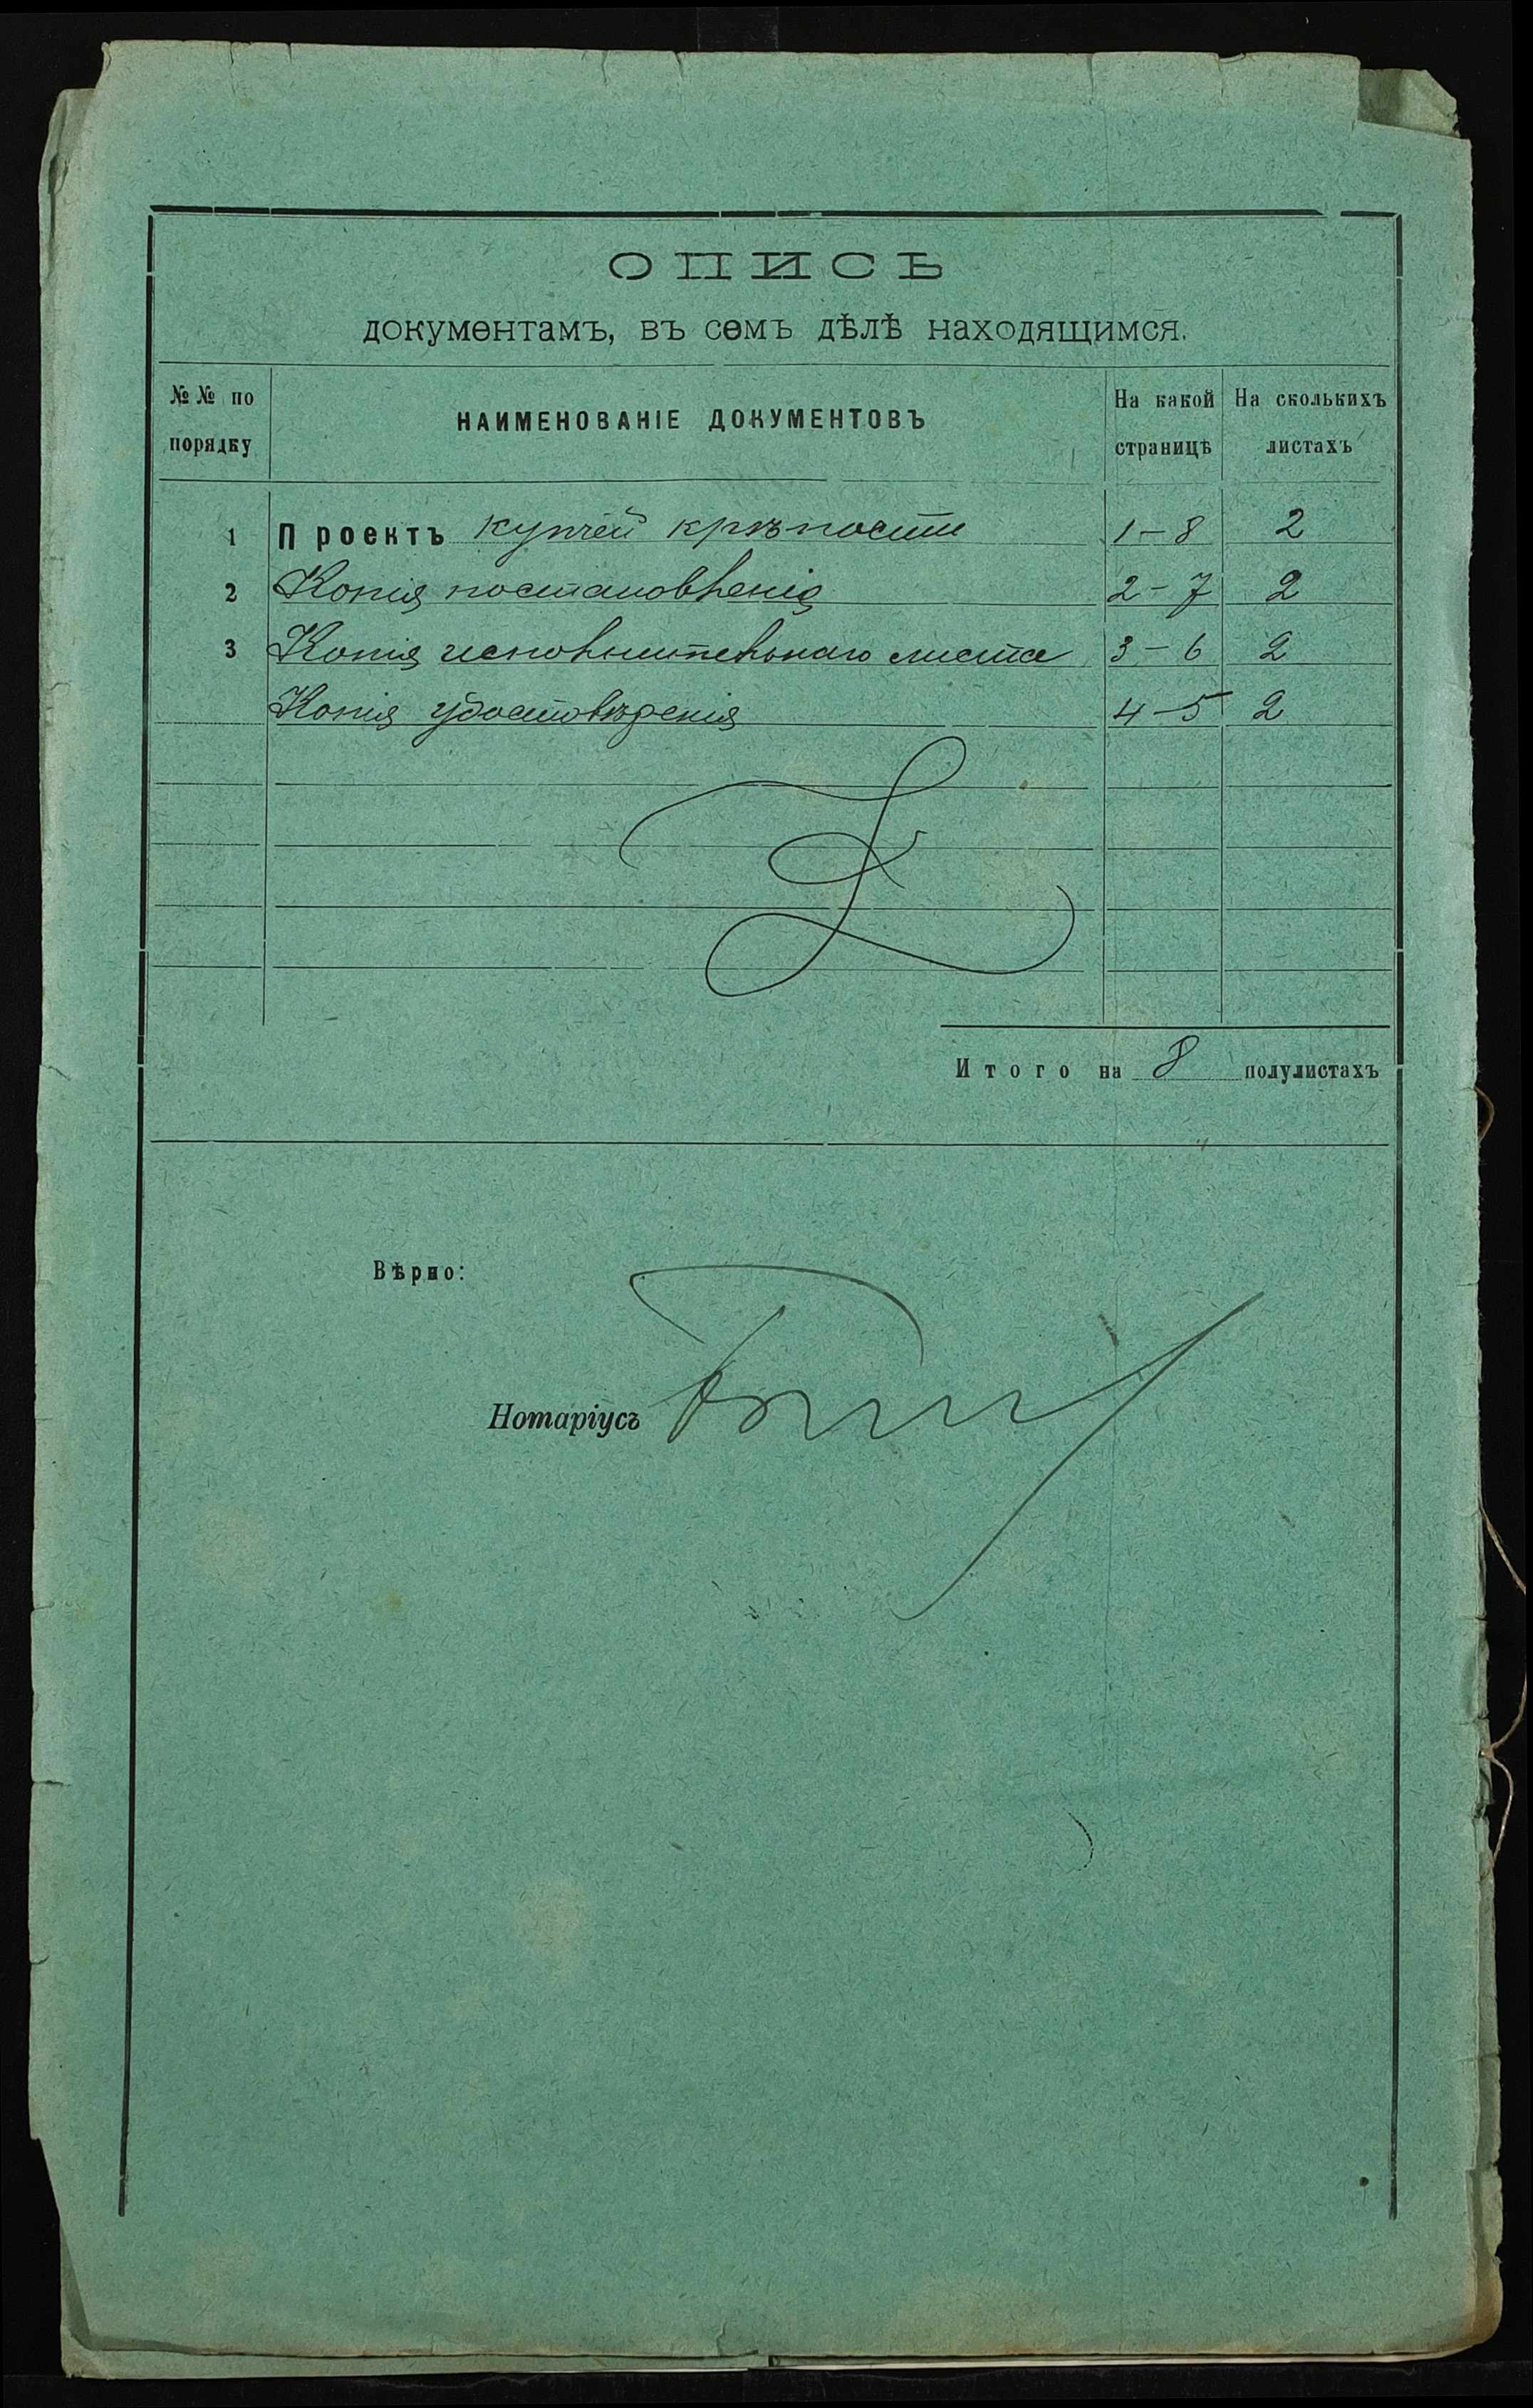 ОПИСЬ
документамъ, въ семъ дѣлѣ находящимся.
№№ по порядку
НАИМЕНОВАНІЕ ДОКУМЕНТОВЪ
На какой страницѣ
На сколькихъ листахъ
1 Проектъ купчей крѣпости 1-8 2
2 Копія постановленія 2-7 2
3 Копія исполнительнаго листа 3-6 2
Копія удостовѣренія 4-5 2
Итого на 8 полулистахъ
Вѣрно:
Нотаріусъ